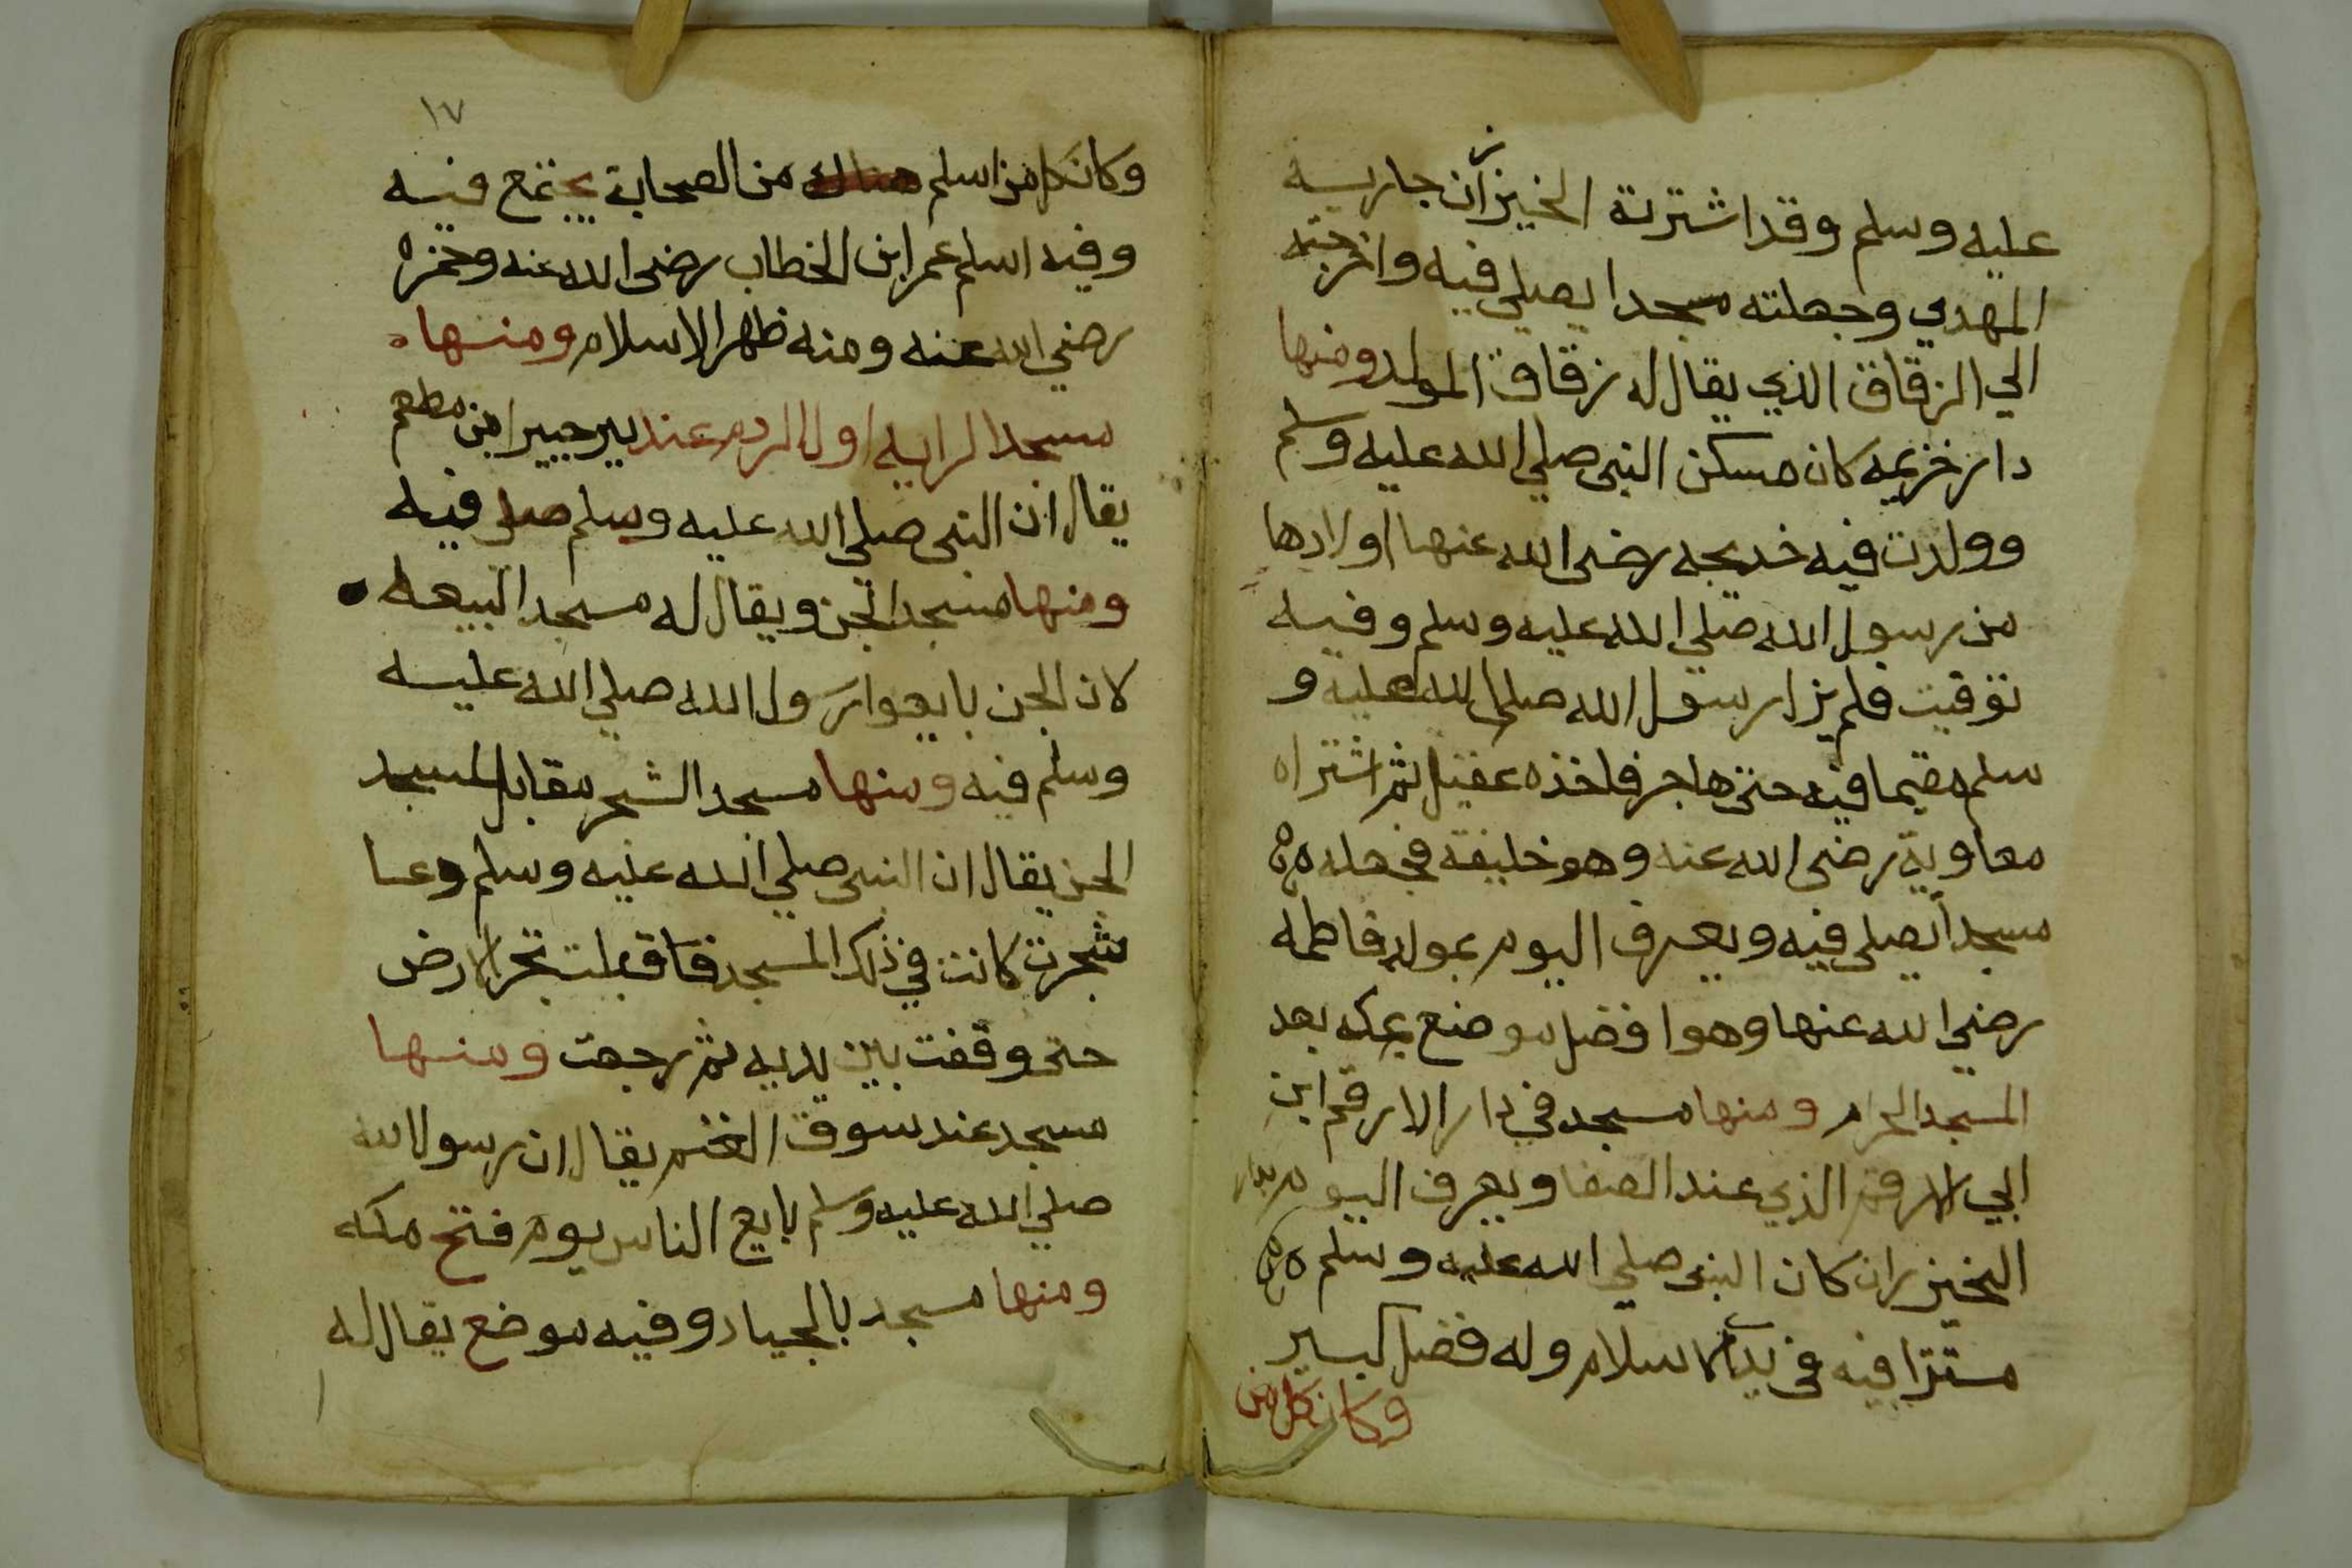 عليه وسلم وقد اشترته الخيزران جاريه
المهدي وجعلته مسجدا يصلي فيه واخرجته
الي الزقاق الذي يقال له زقاق المولد ومنها
دار خزيمه كان مسكن النبي صلي الله عليه وسلم
وولدت فيه خديجه رضي الله عنها اولادها
من رسول الله صلي الله عليه وسلم وفيه
توفيت فلم يزل رسول الله صلي الله عليه و
سلم مقيما فيه حتي هاجر فاخذه عقيل ثم اشتراه
معاوية رضي الله عنه وهو خليفة فجعله
مسجدا يصلي فيه ويعرف اليوم بمولد فاطمه
رضي الله عنها وهو افضل موضع بمكه بعد
المسجد الحرام ومنها مسجد في دار الارقم ابن
ابي الارقم الذي عند الصفا ويعرف اليوم بدار
الخيزران كان النبي صلي الله عليه وسلم
مستترا فيه في بدا الاسلام وله فضل كبير
وكان كل من
١٧
وكان كل من اسلم هناك من الصحابة يجتمع فيه
وفيه اسلم عمر ابن الخطاب رضي الله عنه وحمزه
رضي الله عنه ومنه ظهر الاسلام ومنها
مسجد الرايه اول الردم عند بير جبير ابن مطعم
يقال ان النبي صلي الله عليه وسلم صلي فيه
ومنها مسجد الجن ويقال له مسجد البيعه
لان الجن بايعوا رسول الله صلي الله عليه
وسلم فيه ومنها مسجد الشجر مقابل المسجد
الجن يقال ان النبي صلي الله عليه وسلم دعا
شجرت كانت في ذلك المسجد فاقبلت تجر الارض
حتي وقفت بين يديه ثم رجعت ومنها
مسجد عند سوق الغنم يقال ان رسول الله
صلي الله عليه وسلم بايع الناس يوم فتح مكه
ومنها مسجد بالجياد وفيه موضع يقال له